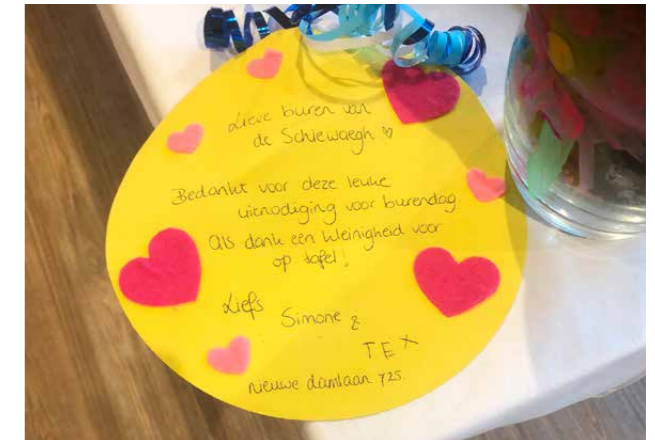 Lieve buren van
de Schiewaegh ♡
Bedankt voor deze leuke
uitnodiging voor burendag.
Als dank een kleinigheid voor
op tafel!
Liefs
Simone &
TEX
nieuwe damlaan 725.